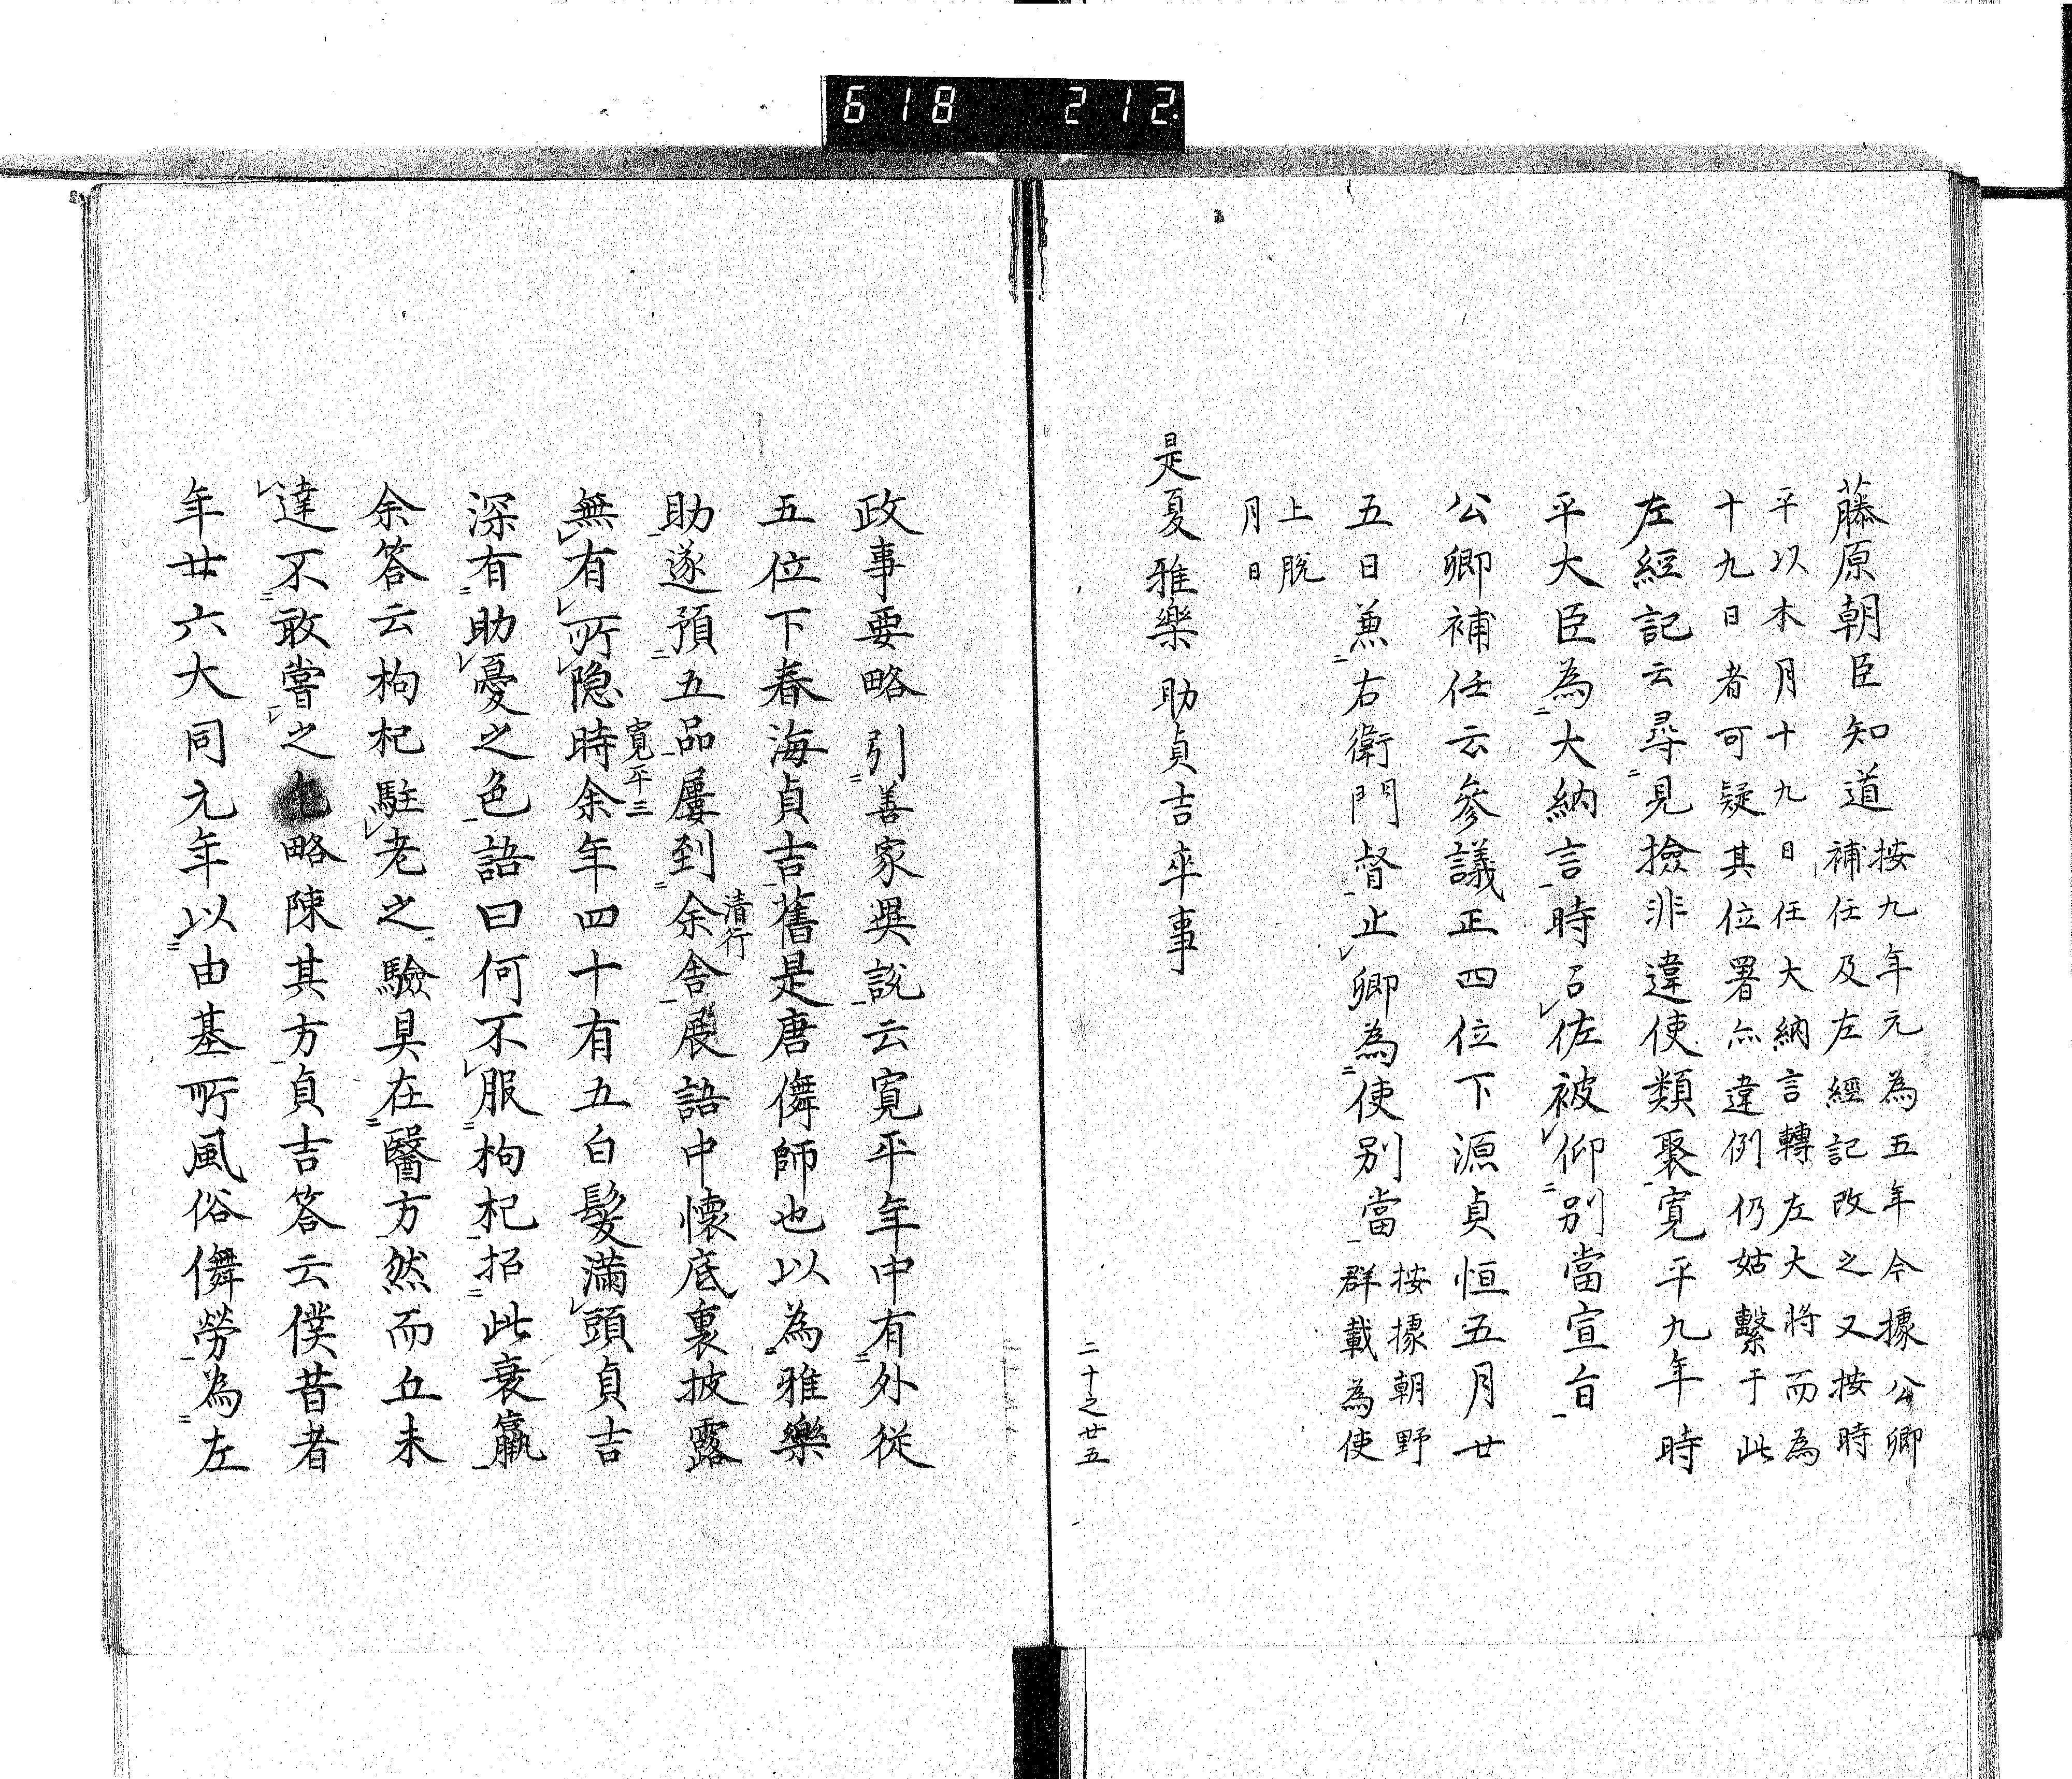 618 212.
藤原朝臣知道
按九年元為五年今據公卿
補任及左經記改之又按時
平以本月十九日任大納言轉左大将而為
十九日者可疑其位署亦違例仍姑繫于此
左經記云尋見撿非違使類聚寛平九年時
平大臣為大納言時召佐被仰別當宣旨
公卿補任云參議正四位下源貞恒五月廿
五日兼右衛門督止卿為使別當
按據朝野
群載為使
上脱
月日
是夏雅樂助貞吉卒事
二十之廿五
政事要略引善家異説云寛平年中有外從
五位下春海貞吉舊是唐儛師也以為雅樂
助遂預五品屢到余舍展語中懷底裏披露
清行
無有所隠時余年四十有五白髮滿頭貞吉
寛平三
深有助憂之色語曰何不服枸杞招此衰羸
余答云枸杞駐老之驗具在醫方然而丘未
達不敢嘗之略陳其方貞吉答云僕昔者
年廿六大同元年以由基所風俗儛勞為左